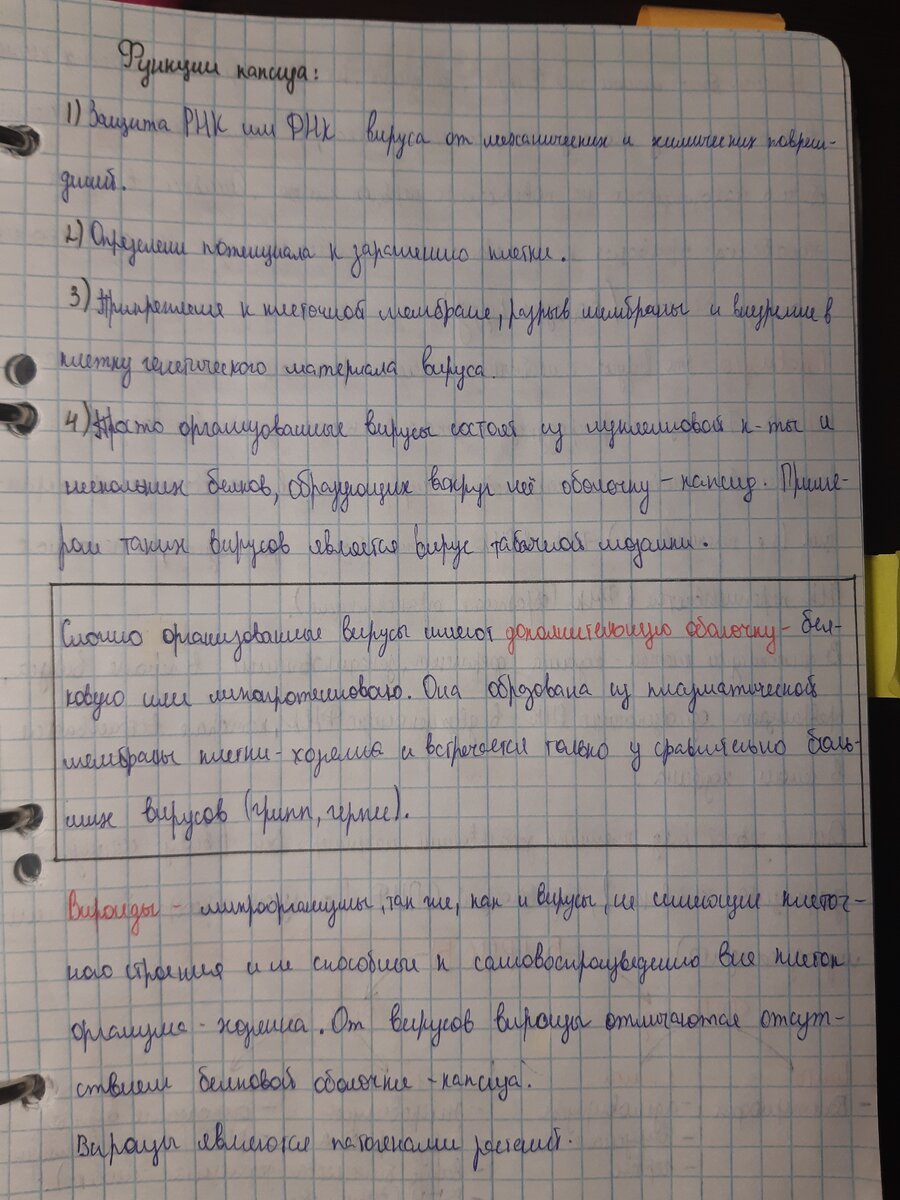 Функции капсида:
1) Защита РНК или ДНК вируса от механических и химических повреж-
дений.
2) Определение потенциала к заражению клетки.
3) Прикрепление к клеточной мембране, разрыв мембраны и внедрение в
клетку генетического материала вируса.
4) Просто организованные вирусы состоят из нуклеиновой к-ты и
нескольких белков, образующих вокруг неё оболочку - капсид. Приме-
ром таких вирусов является вирус табачной мозаики.
Сложно организованные вирусы имеют дополнительную оболочку - бел-
ковую или липопротеиновую. Она образована из плазматической
мембраны клетки-хозяина и встречается только у сравнительно боль-
ших вирусов (грипп, герпес).
Вироиды - микроорганизмы, так же, как и вирусы, не имеющие клеточ-
ного строения и не способные к самовоспроизведению вне клеток
организма-хозяина. От вирусов вироиды отличаются отсут-
ствием белковой оболочки - капсида.
Вироиды являются патогенами растений.